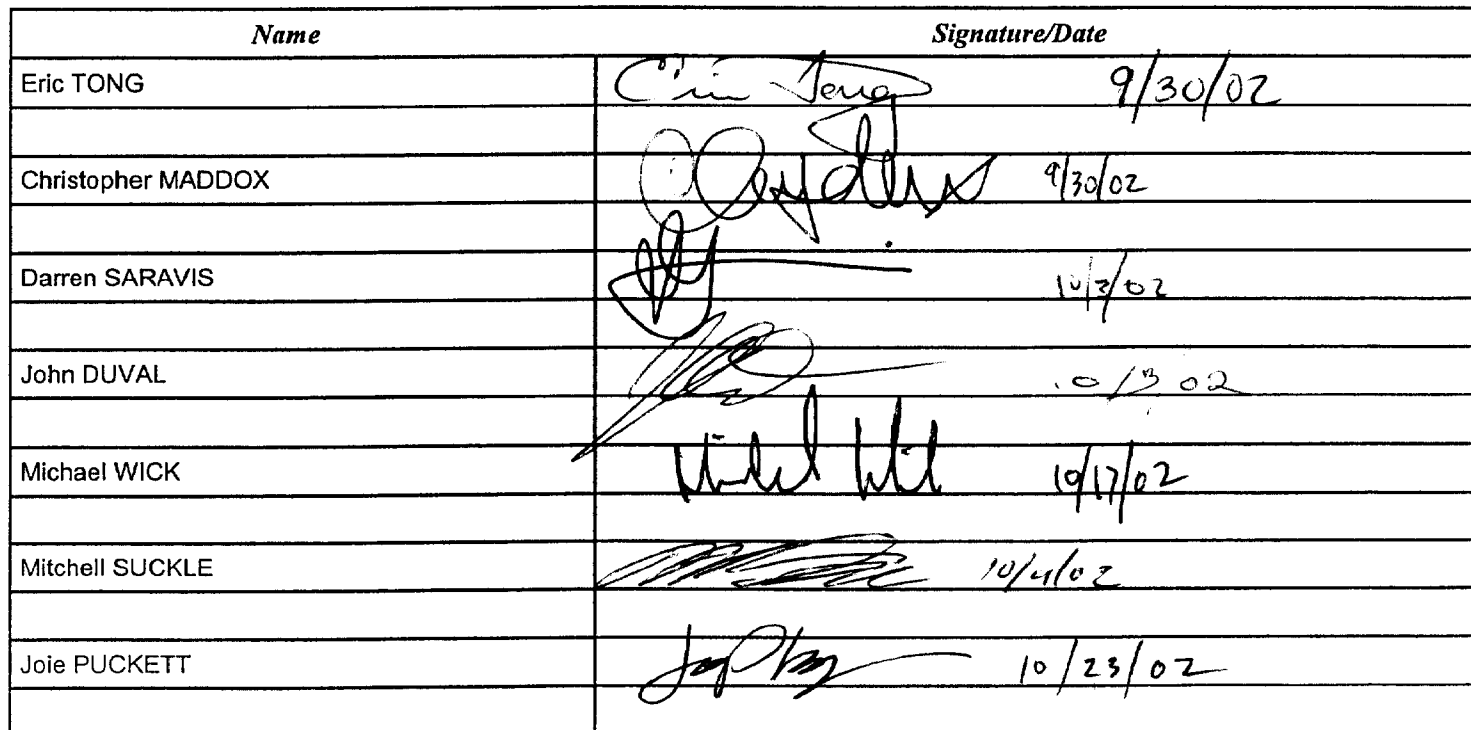 Name Signature/Date
Eric TONG Eric Tong 9/30/02
Christopher MADDOX 9/30/02
Darren SARAVIS 10/3/02
John DUVAL 10/3 02
Michael WICK Michael Wick 10/17/02
Mitchell SUCKLE 10/4/02
Joie PUCKETT 10/23/02